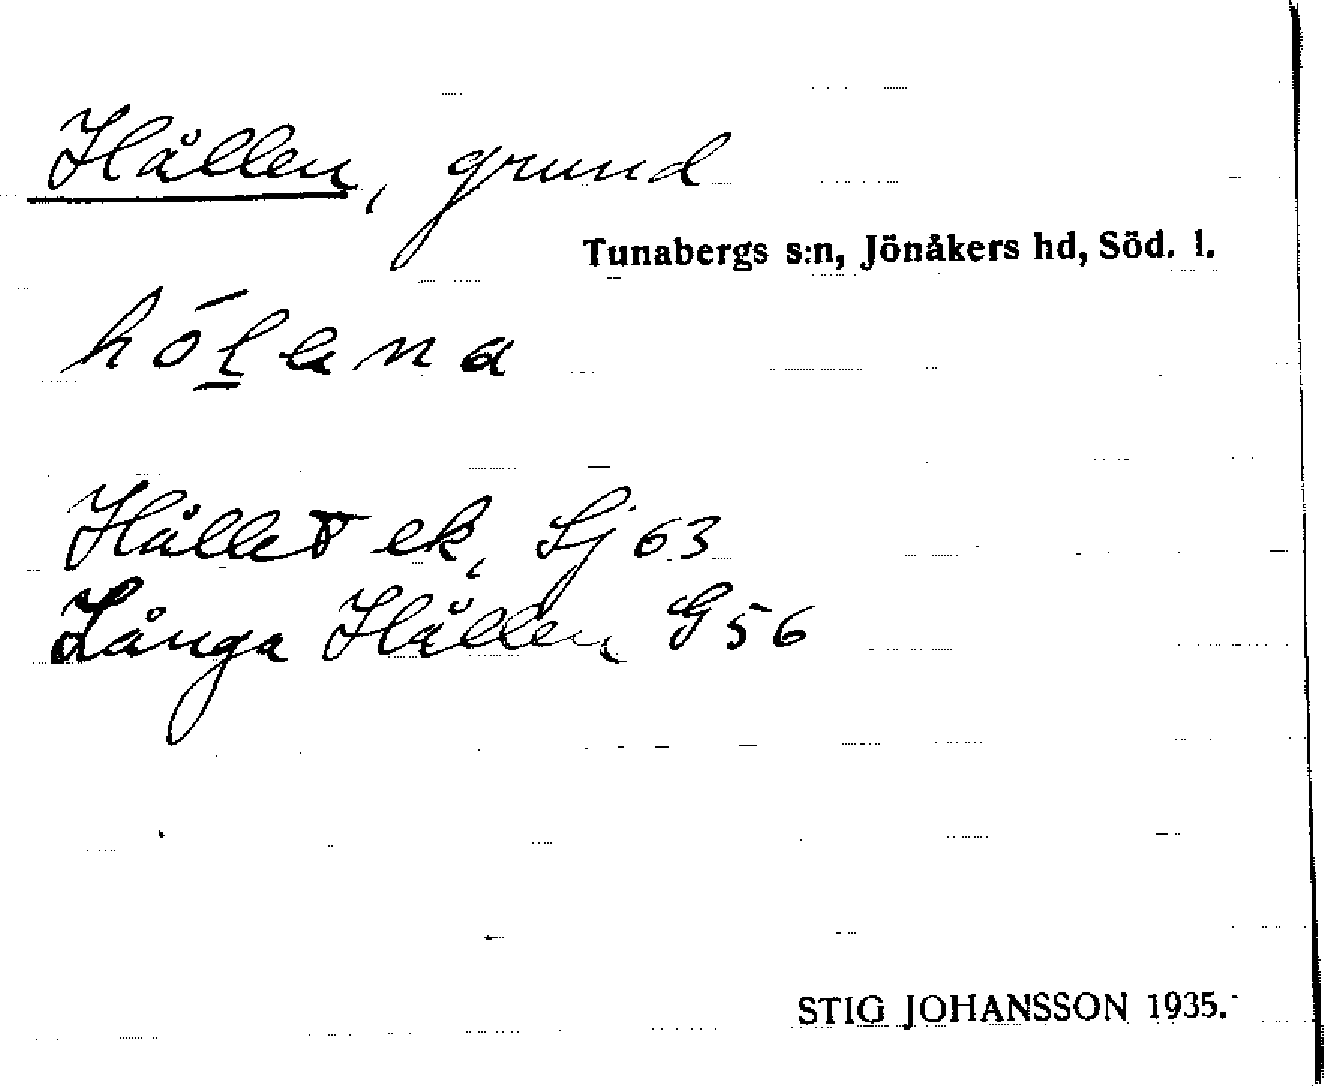 Hållen, grund
Tunabergs s:n, Jönåkers hd, Söd. l.
hó̄l̲ena
Hållet ek, Sj 63
Långa Hållen, G 56
STIG JOHANSSON 1935.